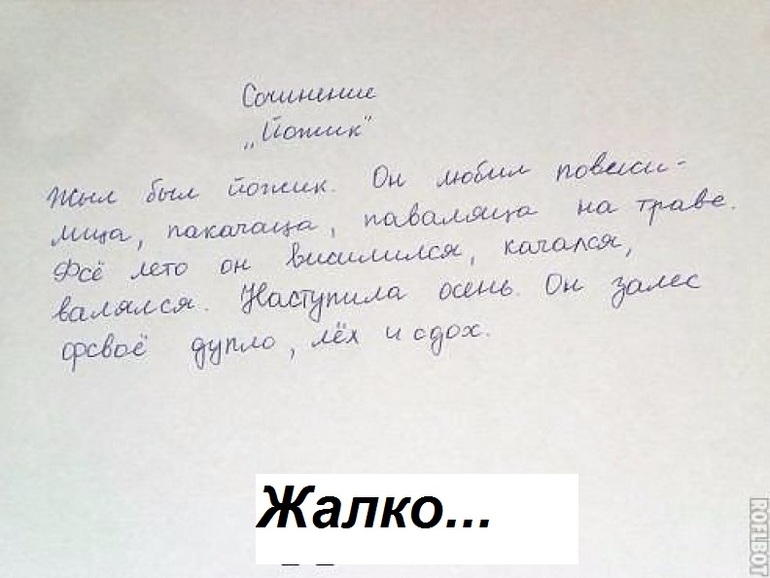 Сочинение
„Йожик"
Жыл был йожик. Он любил повиси-
лица, пакачаца, паваляца на траве.
Фсё лето он висилился, качался,
валялся. Наступила осень. Он залес
фсваё дупло, лёх и сдох.
Жалко...
ROFLBOT